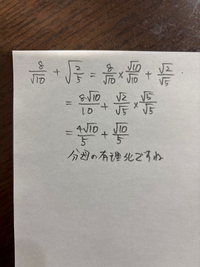 8/√10 + √(2/5) = 8/√10 × √10/√10 + √2/√5
= 8√10/10 + √2/√5 × √5/√5
= 4√10/5 + √10/5
分母の有理化ですね